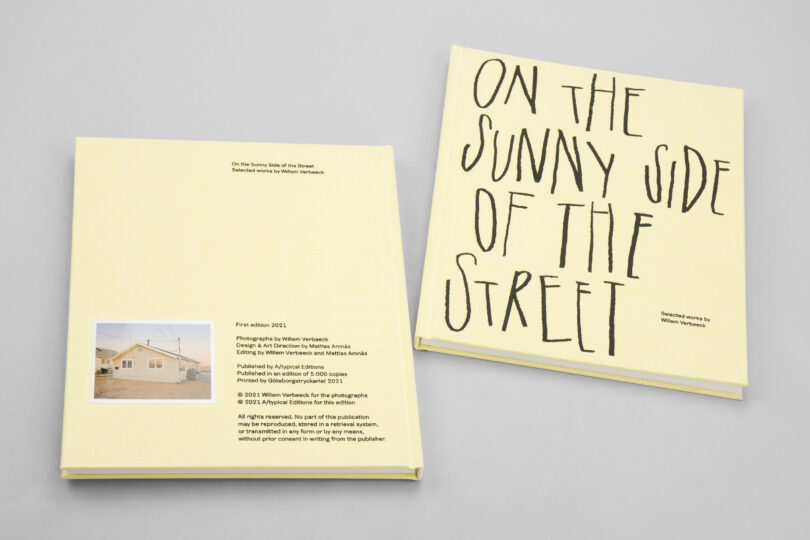 On the Sunny Side of the Street
Selected works by Willem Verbeeck
First edition 2021
Photographs by Willem Verbeeck
Design & Art Direction by Mattias Amnäs
Editing by Willem Verbeeck and Mattias Amnäs
Published by A/typical Editions
Published in an edition of 5.000 copies
Printed by Göteborgstryckeriet 2021
© 2021 Willem Verbeeck for the photographs
© 2021 A/typical Editions for this edition
All rights reserved. No part of this publication
may be reproduced, stored in a retrieval system,
or transmitted in any form or by any means,
without prior consent in writing from the publisher.
ON THE
SUNNY SIDE
OF THE
STREET
Selected works by
Willem Verbeeck